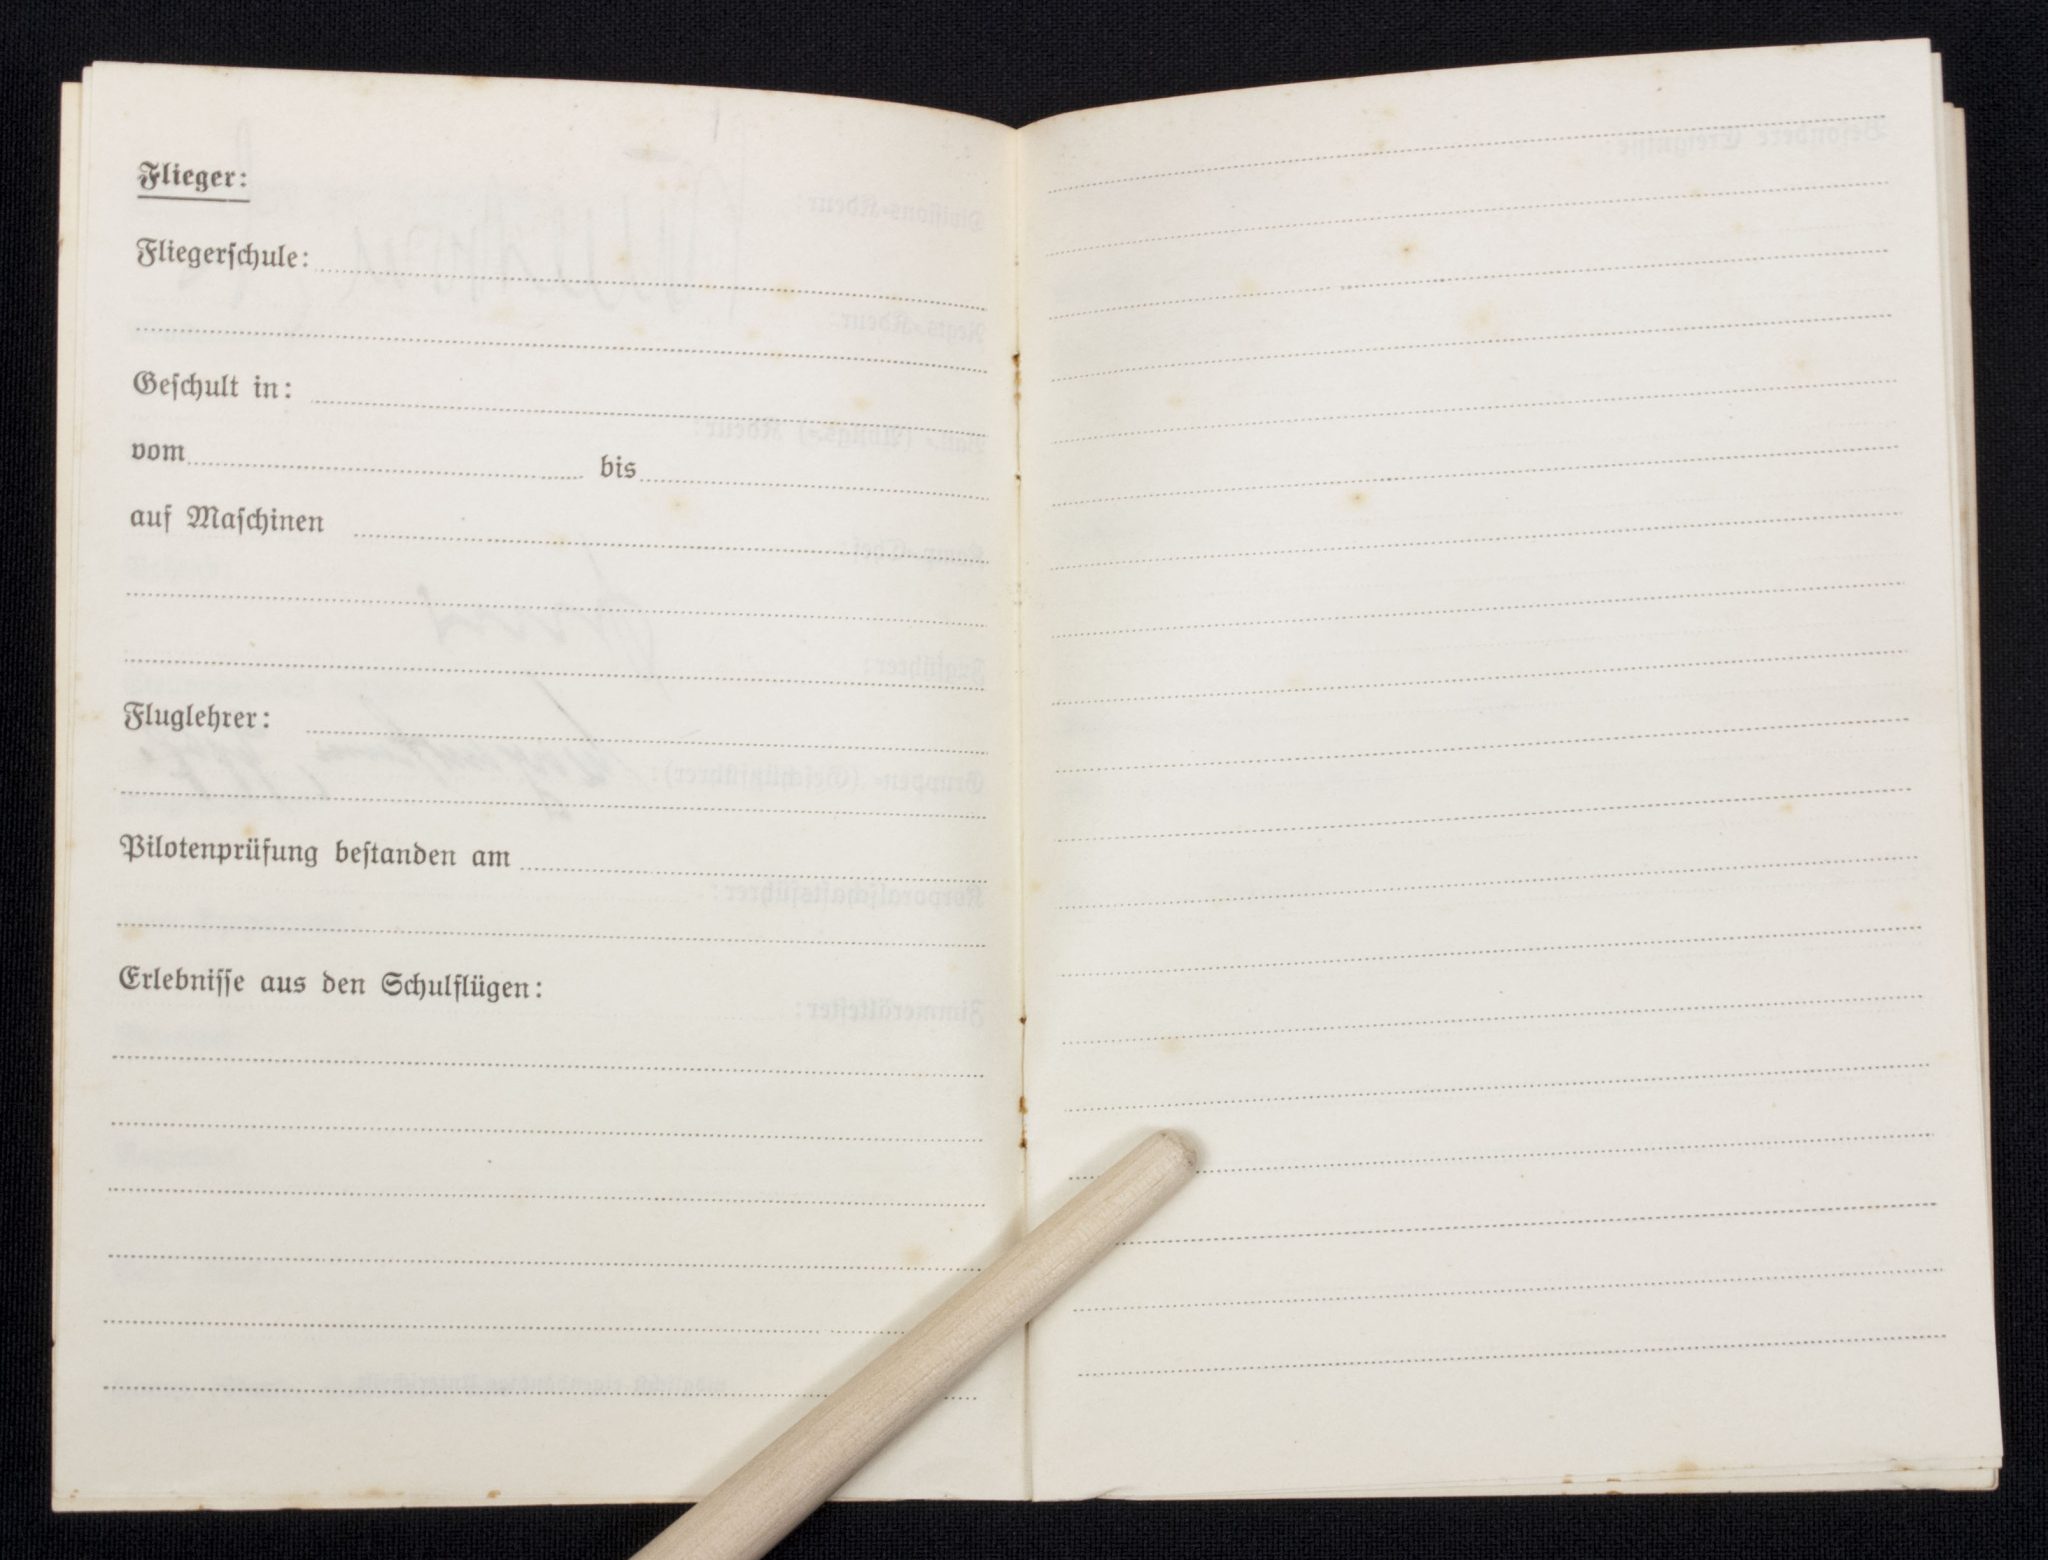 Flieger:
Fliegerschule:
Geschult in:
vom bis
auf Maschinen
Fluglehrer:
Pilotenprüfung bestanden am
Erlebnisse aus den Schulflügen: